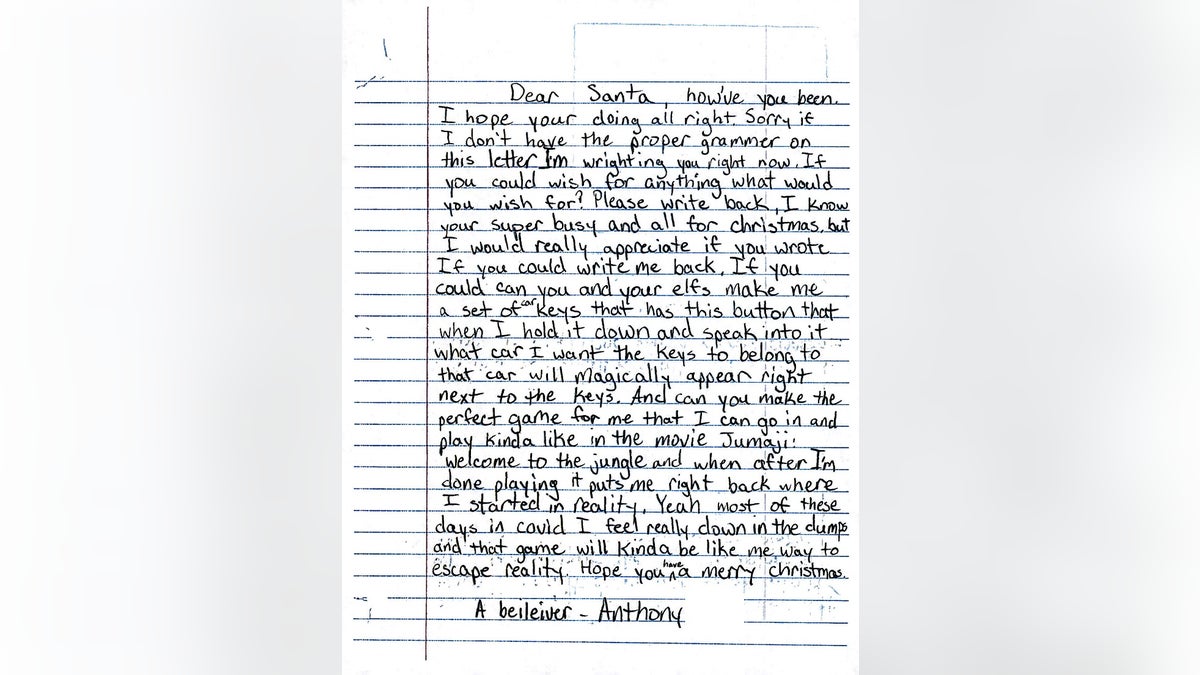 Dear Santa, how've you been.
I hope your doing all right. Sorry if
I don't have the proper grammer on
this letter I'm wrighting you right now. If
you could wish for anything what would
you wish for? Please write back, I know
your super busy and all for christmas, but
I would really appreciate if you wrote
If you could write me back. If you
could can you and your elfs make me
a set of car keys that has this button that
when I hold it down and speak into it
what car I want the keys to belong to
that car will magically appear right
next to the keys. And can you make the
perfect game for me that I can go in and
play kinda like in the movie Jumaji:
welcome to the jungle and when after I'm
done playing it puts me right back where
I started in reality. Yeah most of these
days in covid I feel really down in the dumps
and that game will kinda be like me way to
escape reality. Hope you have a merry christmas.
A beileiver - Anthony